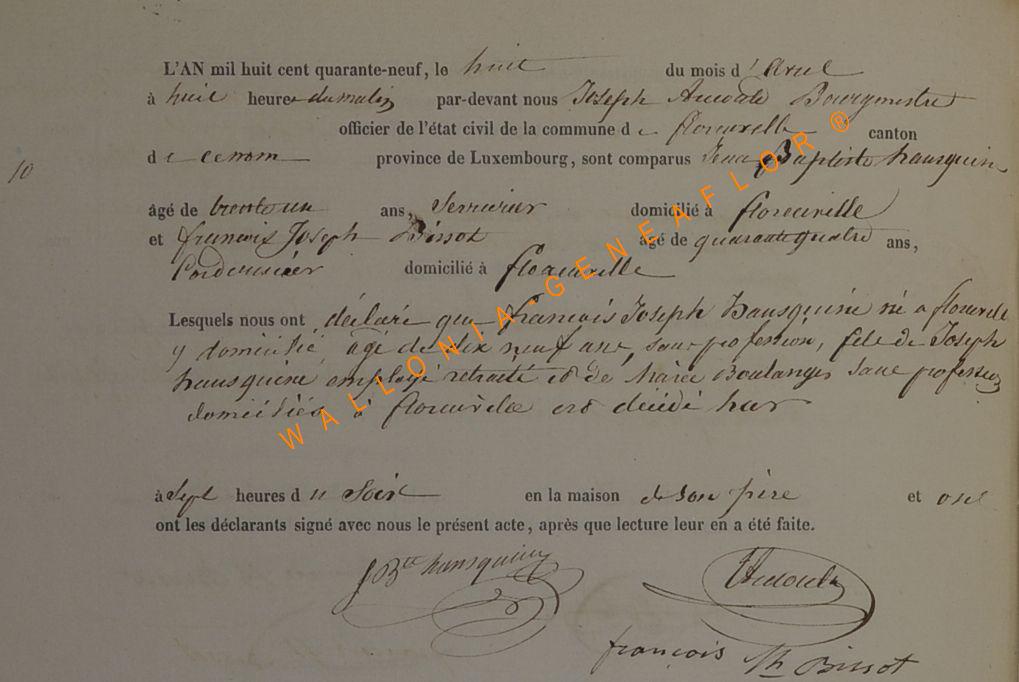 L'AN mil huit cent quarante-neuf, le huit du mois d'avril
à huit heures du matin par-devant nous Joseph Bourgmestre
officier de l'état civil de la commune de florenville canton
de ce nom province de Luxembourg, sont comparus Jean Baptiste hansquine
10
âgé de trente un ans, Serrurier domicilié à florenville
et françois Joseph Bissot âgé de quarante quatre ans,
Cordonnier domicilié à florenville
Lesquels nous ont déclaré que françois Joseph hansquine né a florenville
y domicilié, âgé de dix neuf ans, sans profession, fils de Joseph
hansquine employé retraité et de Marie Boulanger sans profession
domiciliés à florenville est décédé hier
à Sept heures du Soir en la maison de son père et ont
ont les déclarants signé avec nous le présent acte, après que lecture leur en a été faite.
J Bte hansquine
françois Bissot
WALLONIA-GENEAFLOR®